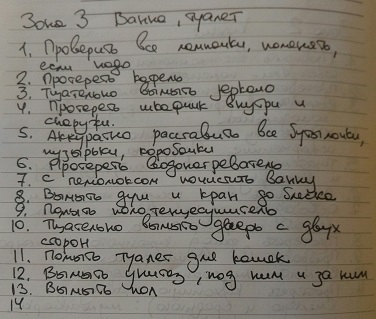 Зона 3 Ванна, туалет
1. Проверить все лампочки, поменять,
если надо
2. Протереть кафель
3. Тщательно вымыть зеркало
4. Протереть шкафчик внутри и
снаружи.
5. Аккуратно расставить все бутылочки,
пузырьки, коробочки
6. Протереть водонагреватель
7. С пемолюксом почистить ванну
8. Вымыть душ и кран до блеска
9. Помыть полотенцесушитель
10. Тщательно вымыть дверь с двух
сторон
11. Помыть туалет для кошек
12. Вымыть унитаз, под ним и за ним
13. Вымыть пол
14